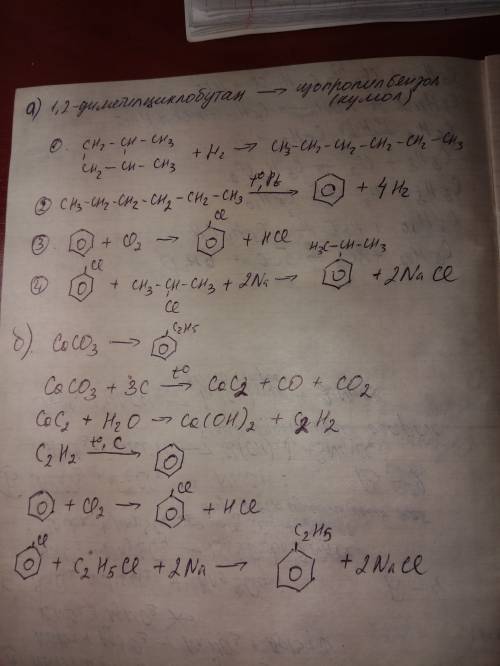 а) 1,2-диметилциклобутан → изопропилбензол
(кумол)
1. CH2 – CH – CH3
CH2 – CH – CH3 + H2 → CH3-CH2-CH2-CH2-CH2-CH3
2 CH3-CH2-CH2-CH2-CH2-CH3 t°,Pt → + 4H2
3 + Cl2 → Cl + HCl
4 Cl + CH3-CH-CH3 + 2Na → H3C-CH-CH3 + 2NaCl
Cl
б) CaCO3 → C2H5
CaCO3 + 3C t° → CaC2 + CO + CO2
CaC2 + H2O → Ca(OH)2 + C2H2
C2H2 t°, C →
+ Cl2 → Cl + HCl
Cl + C2H5Cl + 2Na → C2H5 + 2NaCl